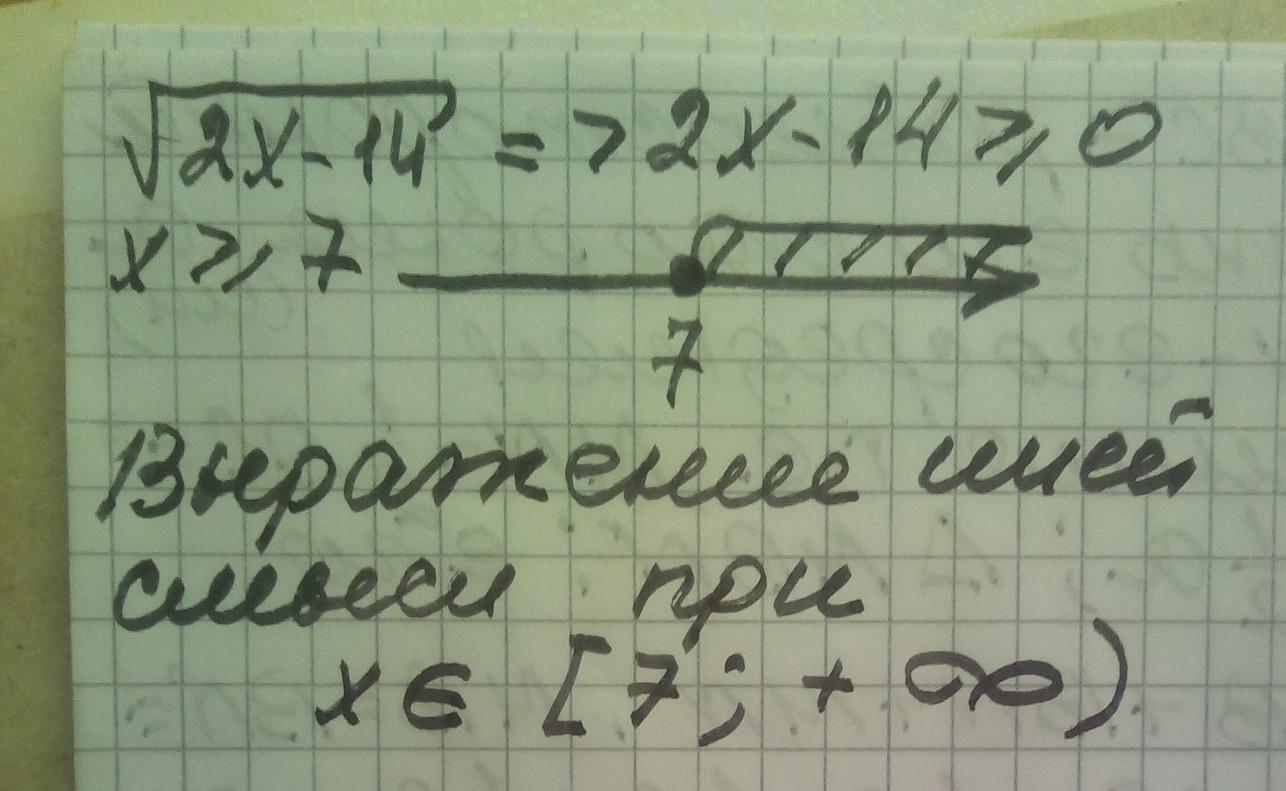 √2x-14 => 2x-14 ⩾ 0
x ⩾ 7
7
Выражение имеет
смысл при
x ∈ [7; + ∞)